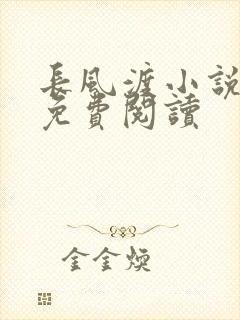 長風渡小說
免費閱讀
金金煥